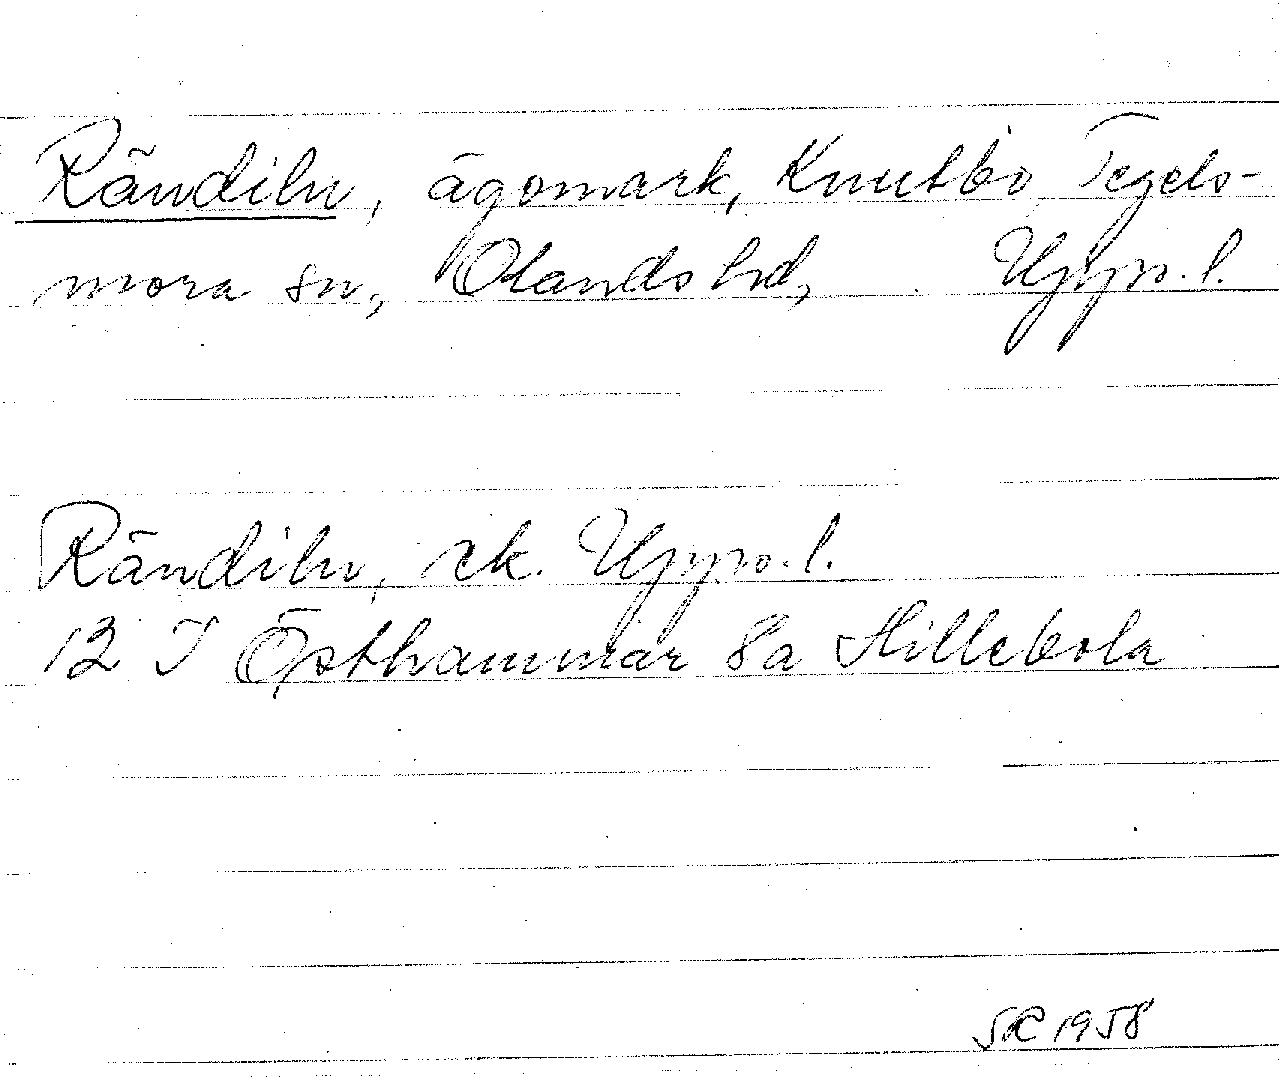 Rändiln, ägomark, Knutbo Tegels-
mora sn, Olands hd, Upps. l.
Rändiln, ek. Upps. l.
12 I Östhammar 8a Hillebola
SR 1958